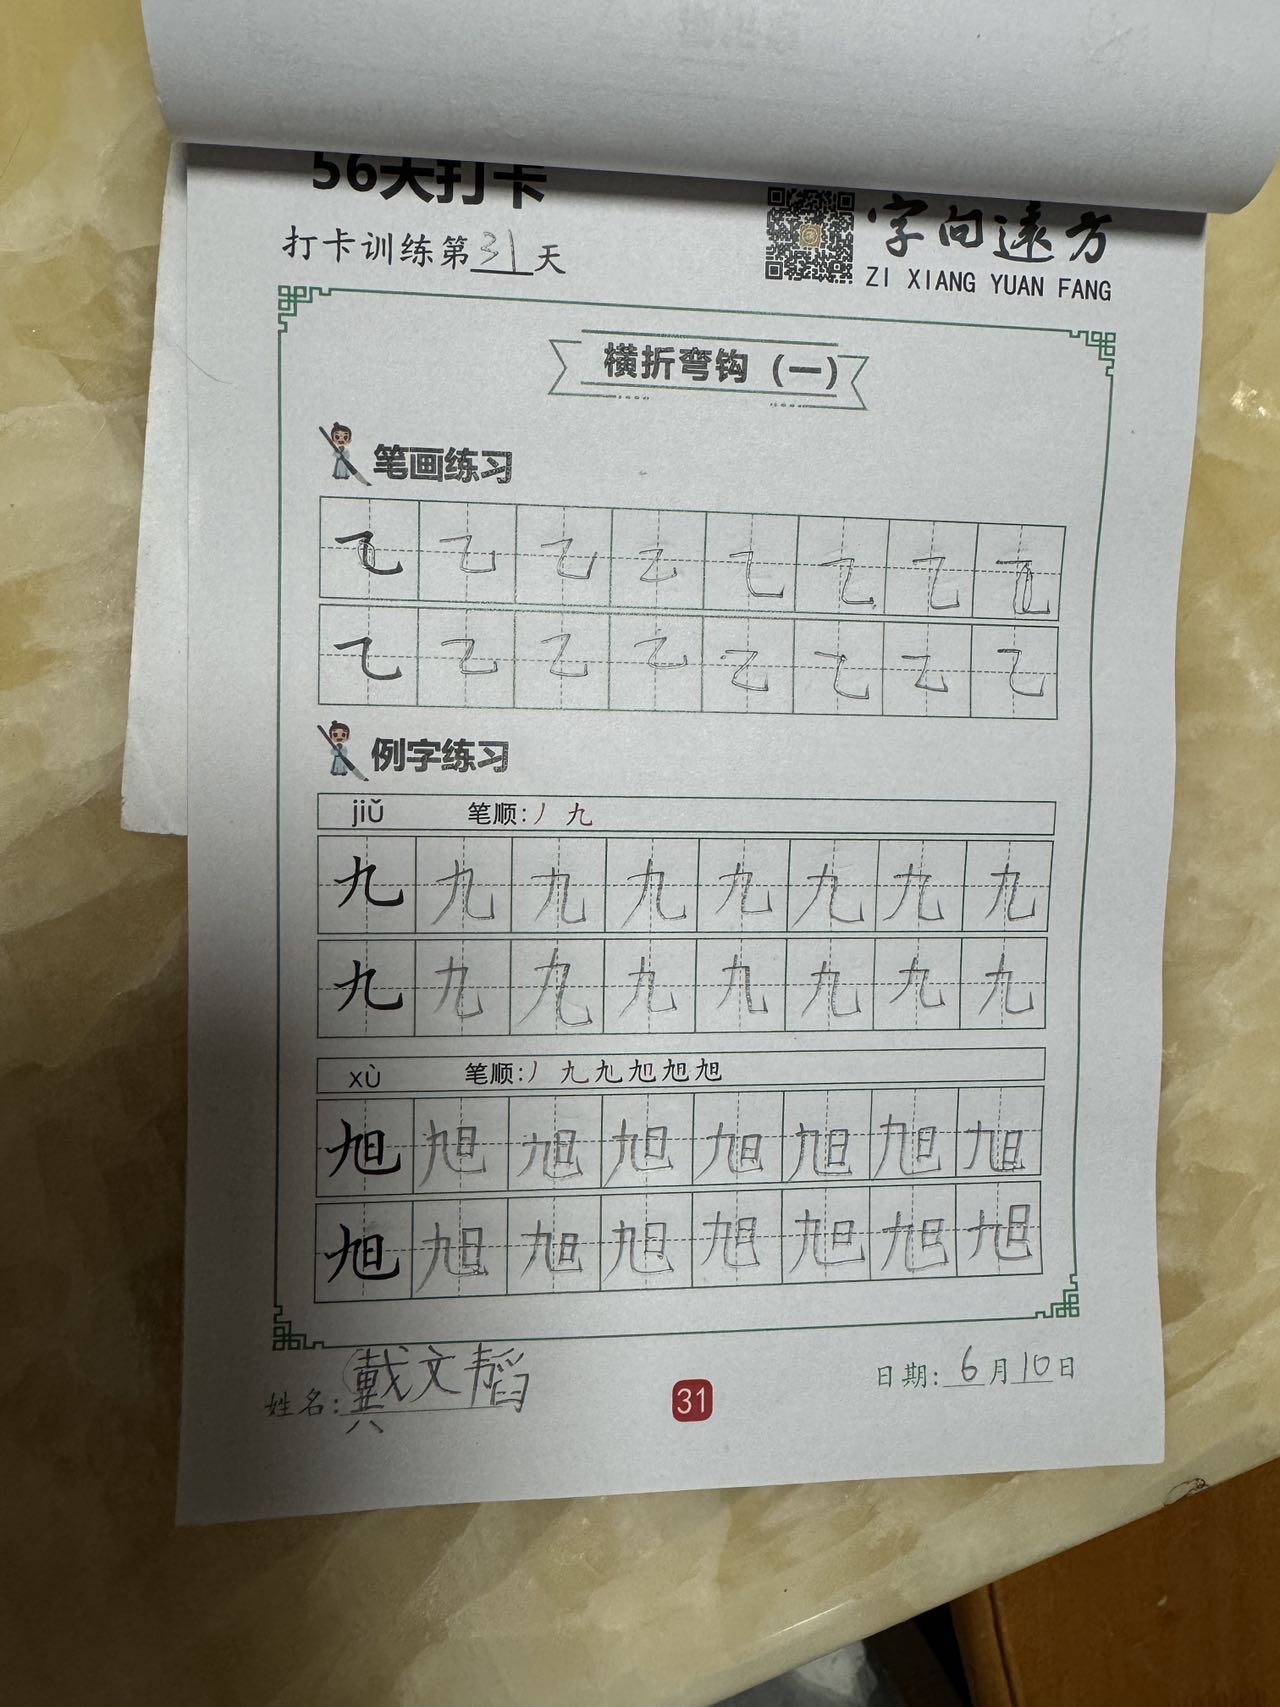 56天打卡
打卡训练第31天
字向远方
ZI XIANG YUAN FANG
横折弯钩（一）
笔画练习
乙 乙 乙 乙 乙 乙 乙 乙
乙 乙 乙 乙 乙 乙 乙 乙
例字练习
jiǔ 笔顺:丿 九
九 九 九 九 九 九 九 九
九 九 九 九 九 九 九 九
xù 笔顺:丿 九 旭 旭 旭 旭
旭 旭 旭 旭 旭 旭 旭 旭
旭 旭 旭 旭 旭 旭 旭 旭
姓名:戴文韬
31
日期:6月10日